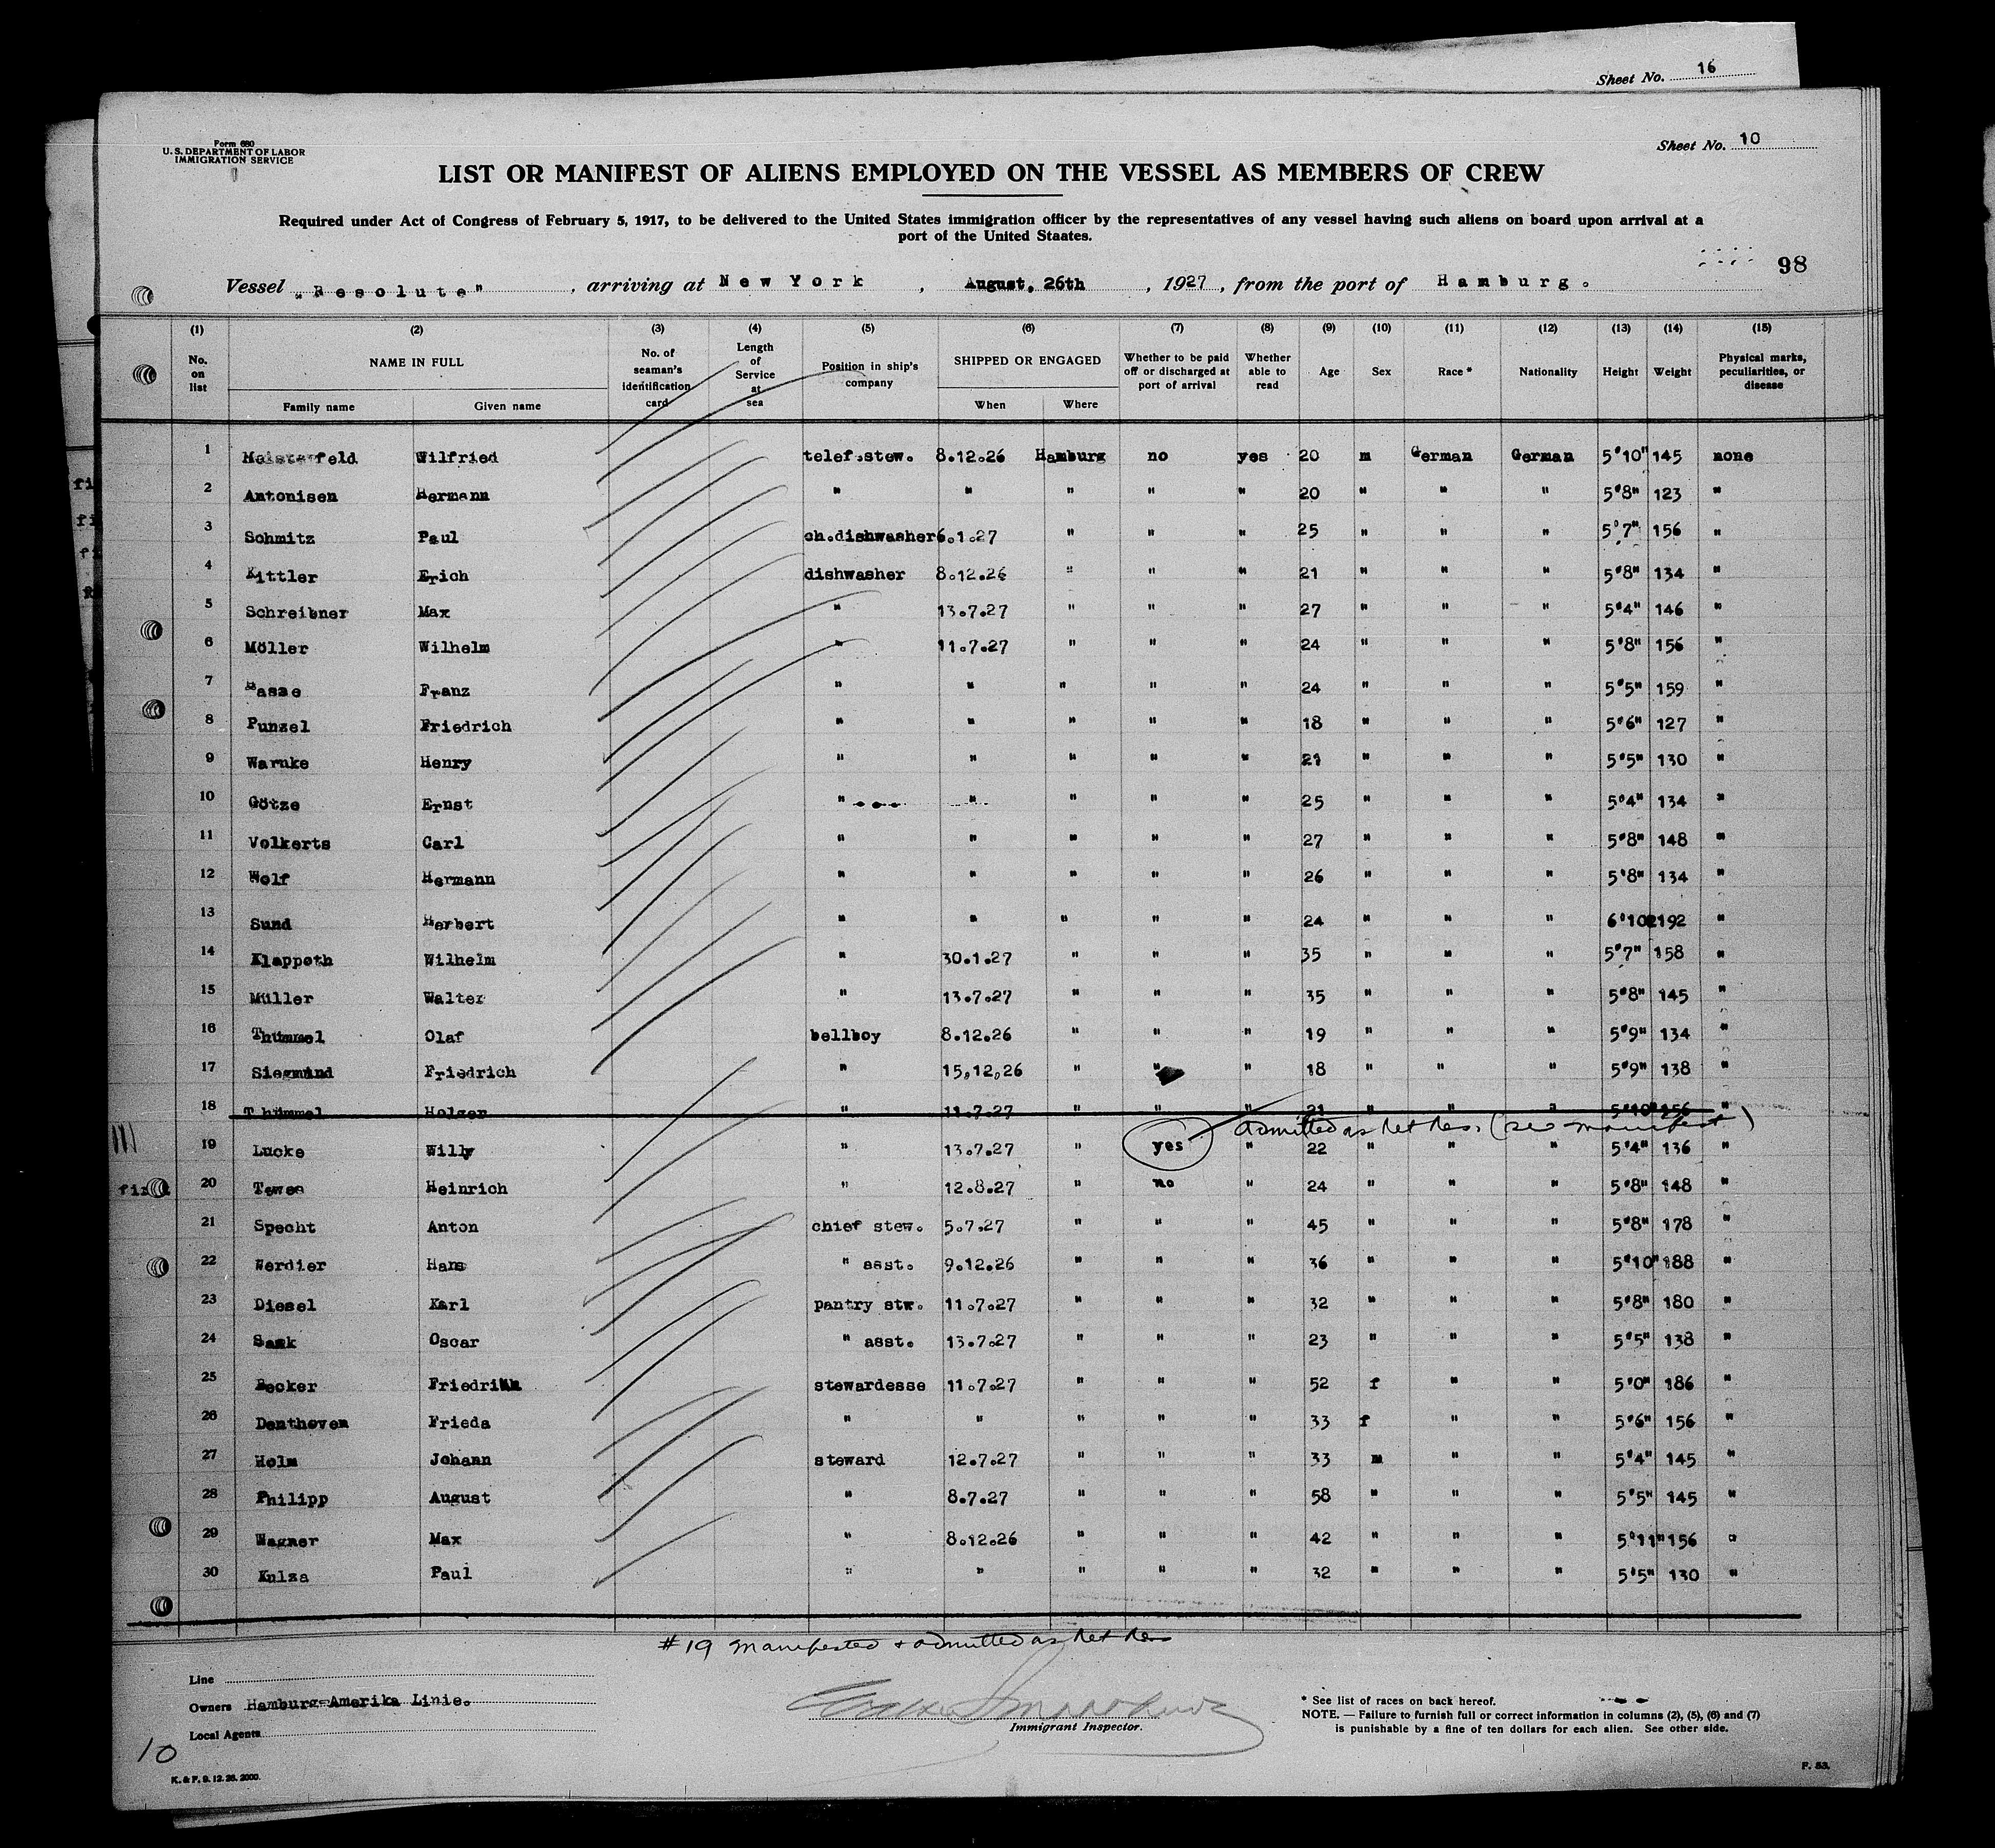 Sheet No. 16
Form 680
U. S. DEPARTMENT OF LABOR
IMMIGRATION SERVICE
Sheet No. 10
LIST OR MANIFEST OF ALIENS EMPLOYED ON THE VESSEL AS MEMBERS OF CREW
Required under Act of Congress of February 5, 1917, to be delivered to the United States immigration officer by the representatives of any vessel having such aliens on board upon arrival at a
port of the United Staates.
98
Vessel „Resolute", arriving at New York, August, 26th, 1927, from the port of Hamburg.
(1) (2) (3) (4) (5) (6) (7) (8) (9) (10) (11) (12) (13) (14) (15)
No. on list NAME IN FULL Family name Given name No. of seaman's identification card Length of Service at sea Position in ship's company SHIPPED OR ENGAGED When Where Whether to be paid off or discharged at port of arrival Whether able to read Age Sex Race * Nationality Height Weight Physical marks, peculiarities, or disease
1 Meisterfeld Wilfried telef.stew. 8.12.26 Hamburg no yes 20 m German German 5'10" 145 none
2 Antonisen Hermann " " " " " 20 " " " 5'8" 123 "
3 Schmitz Paul ch.dishwasher 6.1.27 " " " 25 " " " 5'7" 156 "
4 Kittler Erich dishwasher 8.12.26 " " " 21 " " " 5'8" 134 "
5 Schreibner Max " 13.7.27 " " " 27 " " " 5'4" 146 "
6 Möller Wilhelm " 11.7.27 " " " 24 " " " 5'8" 156 "
7 Franz " " " " " 24 " " " 5'5" 159 "
8 Punzel Friedrich " " " " " 18 " " " 5'6" 127 "
9 Warnke Henry " " " " " 21 " " " 5'5" 130 "
10 Götze Ernst " " " " " 25 " " " 5'4" 134 "
11 Volkerts Carl " " " " " 27 " " " 5'8" 148 "
12 Wolf Hermann " " " " " 26 " " " 5'8" 134 "
13 Sund Herbert " " " " " 24 " " " 6'10 192 "
14 Klappoth Wilhelm " 30.1.27 " " " 35 " " " 5'7" 158 "
15 Müller Walter " 13.7.27 " " " 35 " " " 5'8" 145 "
16 Thümmel Olaf bellboy 8.12.26 " " " 19 " " " 5'9" 134 "
17 Siegmund Friedrich " 15.12.26 " " " 18 " " " 5'9" 138 "
18 Thümmel Holger " 11.7.27 " " " 21 " " " 5'10" 156 "
admitted as Ret Res. (see manifest)
19 Lucke Willy " 13.7.27 " yes " 22 " " " 5'4" 136 "
20 Tewes Heinrich " 12.8.27 " no " 24 " " " 5'8" 148 "
21 Specht Anton chief stew. 5.7.27 " " " 45 " " " 5'8" 178 "
22 Werdier Hans " asst. 9.12.26 " " " 36 " " " 5'10" 188 "
23 Diesel Karl pantry stw. 11.7.27 " " " 32 " " " 5'8" 180 "
24 Sask Oscar " asst. 13.7.27 " " " 23 " " " 5'5" 138 "
25 Becker stewardesse 11.7.27 " " " 52 f " " 5'0" 186 "
26 Denthoven Frieda " " " " " 33 f " " 5'6" 156 "
27 Holm Johann steward 12.7.27 " " " 33 m " " 5'4" 145 "
28 Philipp August " 8.7.27 " " " 58 " " " 5'5" 145 "
29 Wagner Max " 8.12.26 " " " 42 " " " 5'11" 156 "
30 Kulza Paul " " " " " 32 " " " 5'5" 130 "
#19 Manifested + admitted as Ret Res
Line
Owners Hamburg-Amerika Linie.
Local Agents
Immigrant Inspector.
* See list of races on back hereof.
NOTE. — Failure to furnish full or correct information in columns (2), (5), (6) and (7)
is punishable by a fine of ten dollars for each alien. See other side.
10
K. & F. 9. 12. 26. 2000.
F. 53.